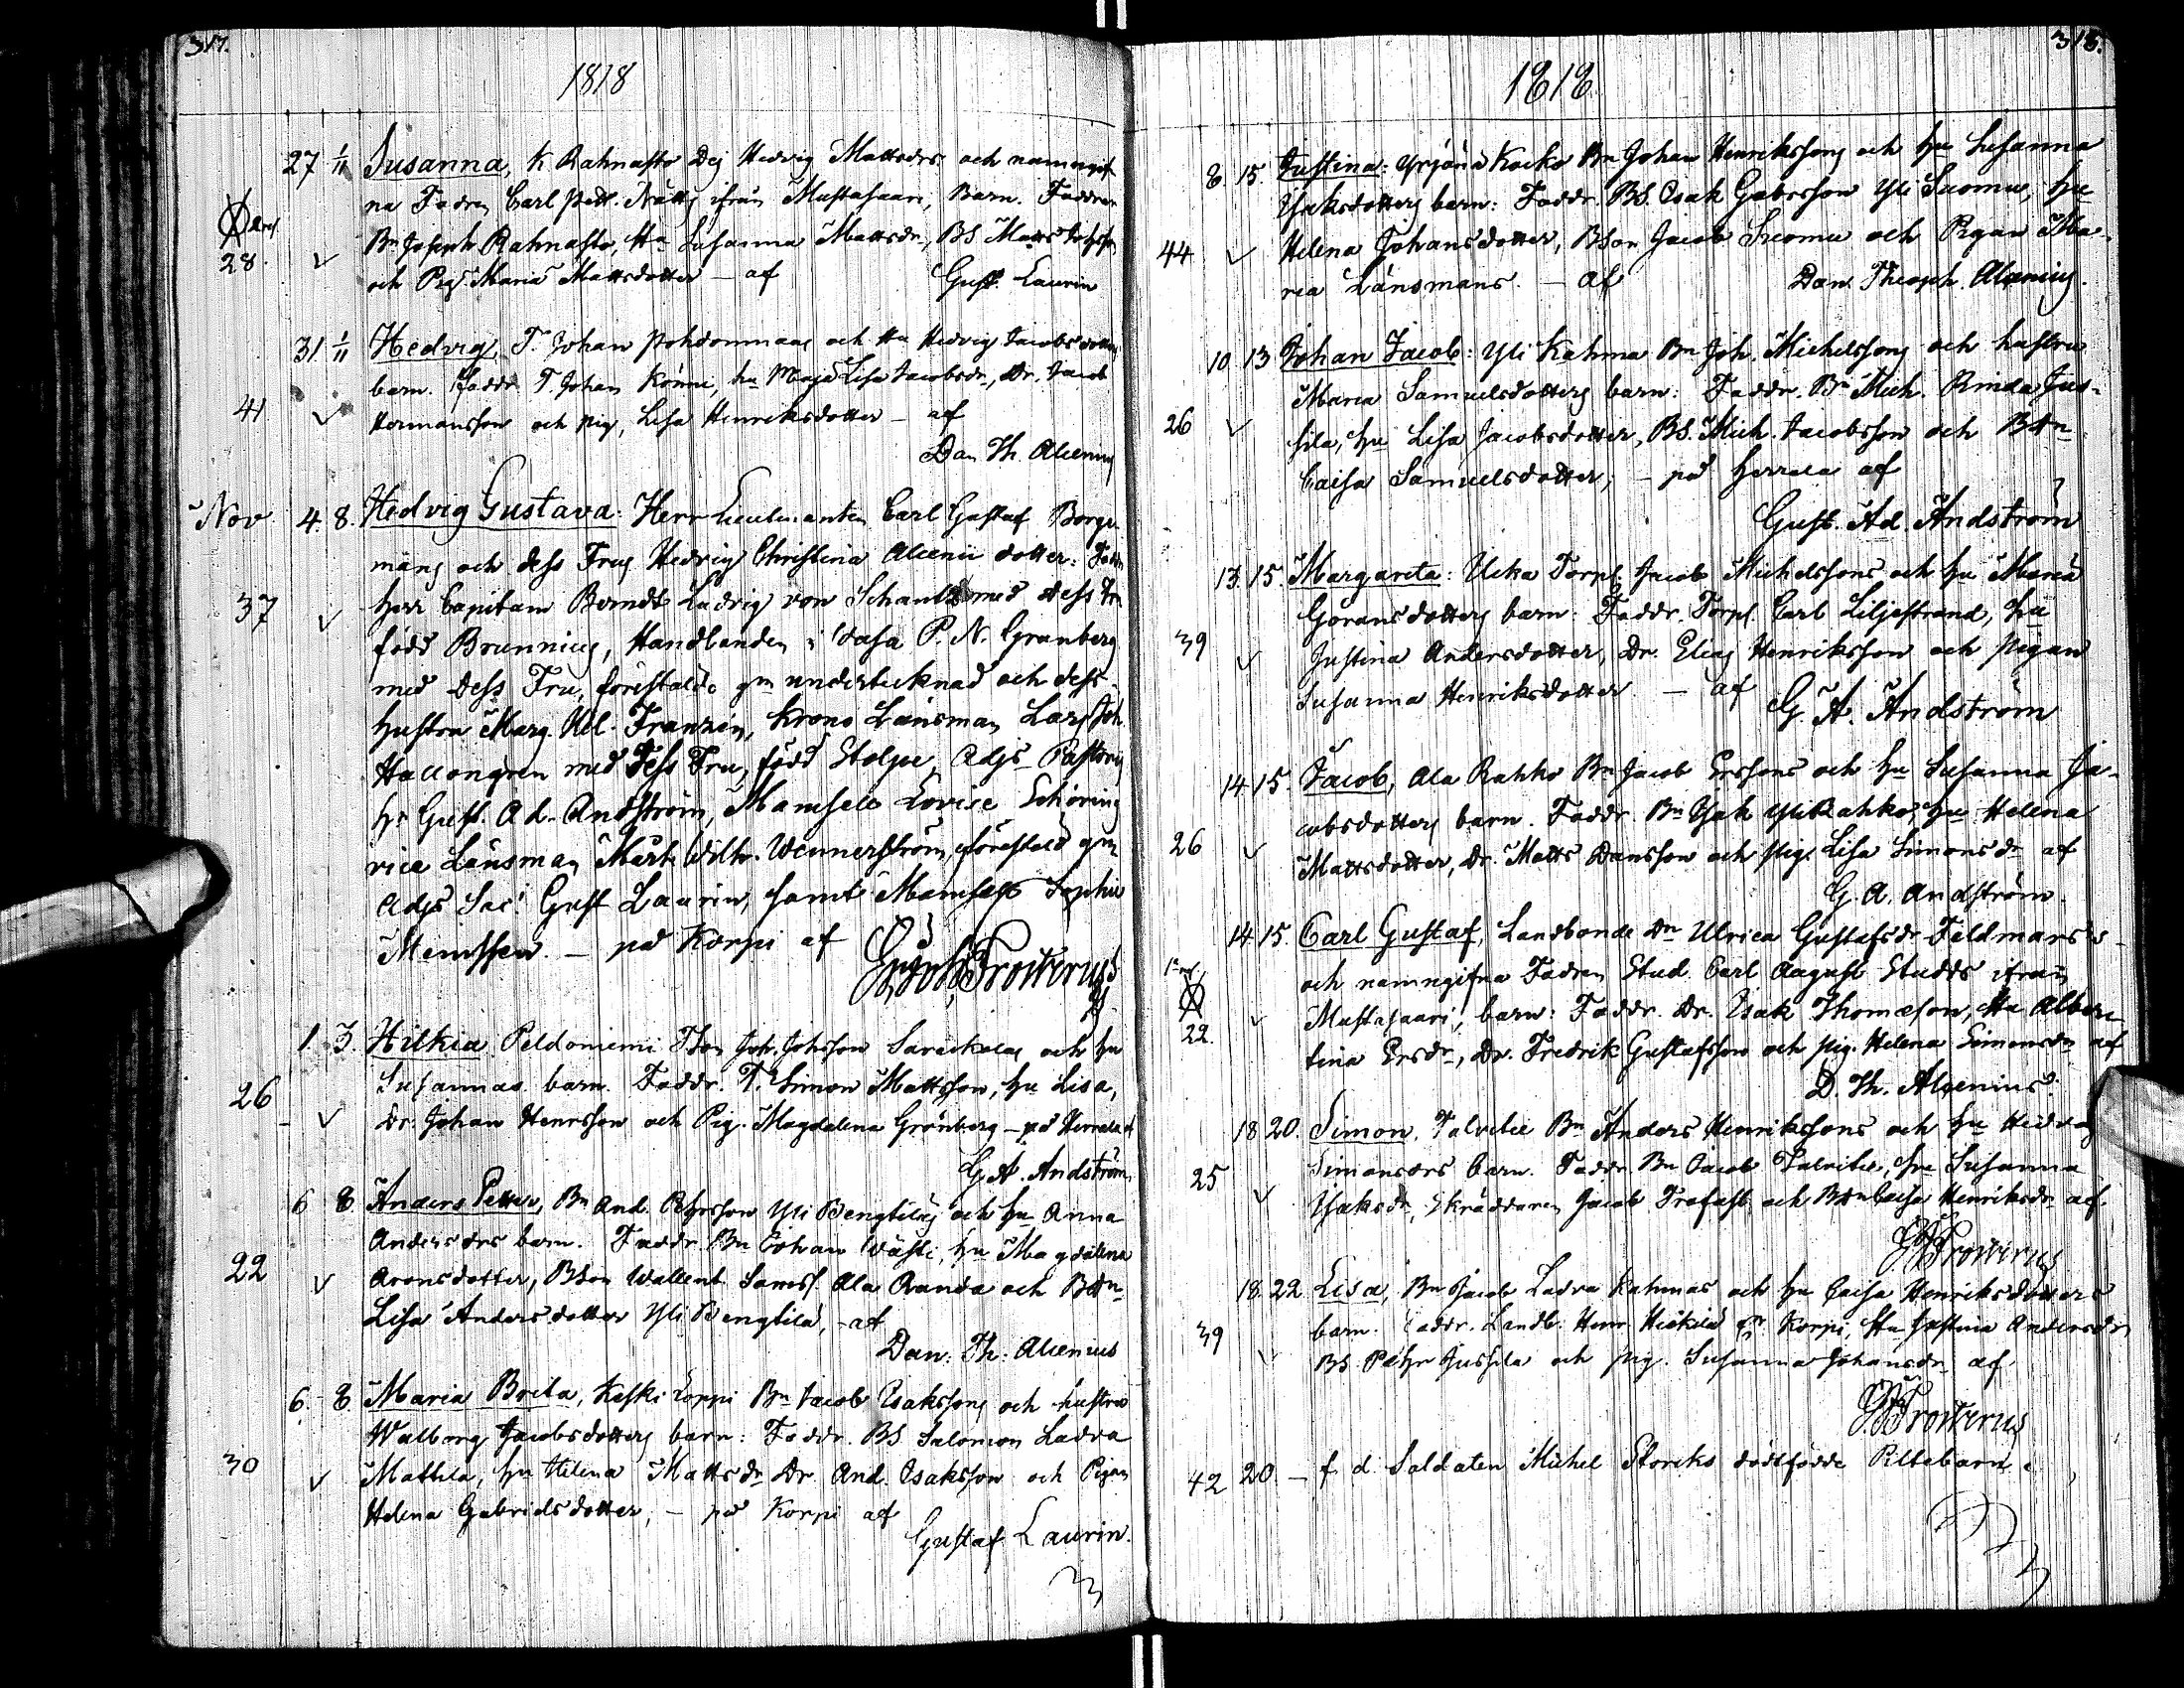 317.
1818
27 1/11 Susanna, K Rahnasto Dej Hedvig Mattsdrs och namngif-
na Fadren Carl Pett. Nätty ifrån Mustasaari, Barn. Faddrar
28. Bn Joseph Rahnasto, Hu Susanna Mattsdr, BS Matts
och Pig. Maria Mattsdotter — af Gust. Laurin
31 1/11 Hedvig, T. Johan Pohdonmaas och Hu Hedvig Jacobsdotters
barn. Faddr. T. Johan Könni, hu Maja Lisa Jacobsdr, Dr. Jacob
41 Hermansson och pig, Lisa Henriksdotter — af
Dan Th. Alcenius
Nov. 4. 8. Hedvig Gustava: Herr Lieutenanten Carl Gustaf Borge-
mans och dess Frus Hedvig Christina Alcenii dotter: Faddr
37 Herr Capitain Berndt Ludvig von Schantz med dess Fru
född Brunnius, Handlanden i Vasa P. N. Granberg
med Dess Fru, förestälde gm undertecknad och dess
hustru Marg. Hel. Franzén, Krono Länsman Lars Joh.
Hallongren med dess Fru, född Stolpe, Adjs Pastoris
Hr Gust. Ad. Andström, Mamsell Lovise Schöring
vice Länsman Mårt. Wilh. Wennerström, förestäld gm
Adjs Sac: Gust Laurin, samt Mamsell Sophie
— på Korpi af Frosterus
1. 3. Hilkia Peldoniemi TSon Joh. Johsson Sarackalas och hu
Susannas barn. Faddr. T. Simon Mattsson, hu Lisa,
26 Dr. Johan Henrsson och Pig. Magdalena Grönberg — på Herrala af
G. A. Andström
6 8. Anders Petter, Bn And. Pehrsson Yli Bengtilas och hu Anna
Andersdrs barn. Faddr. Bn Johan Wästi, hu Magdalena
22 Aronsdotter, BSon Wallent. Samss. Ala Randa och BDn
Lisa Andersdotter Yli Bengtilä, — af
Dan: Th: Alcenius
6. 8 Maria Brita, Keski Loppi Bn Jacob Isakssons och hustru
Walborg Jacobsdotters barn: Faddr. BS Salomon Ladva
30 Mattila, hu Helena Mattsdr, Dr. And. Isaksson och Pigan
Helena Gabrielsdotter, — på Korpi af
Gustaf Laurin.
318.
1818
8. 15. Justina: Yrjänä Kocko Bn Johan Henrikssons och hu Susanna
Isaksdotters barn: Faddr. BS. Isak Gabrsson Yli Suomu, hu
44 Helena Johansdotter, BSon Jacob Suomu och Pigan Ma-
ria Länsmans. — af Dan. Theoph. Alcenius.
10 13 Johan Jacob: Yli Kahma Bn Joh. Michelssons och hustru
Maria Samuelsdotters barn: Faddr. Bn Mich. Rinda Jus-
26 sila, hu Lisa Jacobsdotter, BS. Mich. Jacobsson och BDn
Caisa Samuelsdotter, — på Herrala af
Gust. Ad. Andström
13. 15. Margareta: Ucka Torpl. Jacob Michelssons och hu Maria
Göransdotters barn: Faddr. Torpl. Carl Liljestrand, hu
39 Justina Andersdotter, Dr. Elias Henriksson och pigan
Susanna Henriksdotter — af G. A. Andström
14 15. Jacob, Ala Rahko Bn Jacob Erssons och hu Susanna Ja-
cobsdotters barn. Faddr. Bn Isak Yli Rahko, hu Helena
26 Mattsdotter, Dr. Matts Dansson och pig. Lisa Simonsdr af
G. A. Andström.
14 15. Carl Gustaf, Landbonde Dn Ulrica Gustafsdr Feldmars
och namngifna Fadren Stud. Carl August Studds ifrån
22. Mustasaari, barn: Faddr. Dr. Isak Thomasson, Hu Alber-
tina Ersdr, Dr. Fredrik Gustafsson och pig. Helena Simonsdr af
D. Th. Alcenius.
18 20. Simon, Talvitie Bn Anders Henrikssons och hu Hedvig
25 Simonsdrs barn. Faddr. Bn Jacob Talvitie, hu Susanna
Isaksdr, Skräddaren Jacob Trofast och BDn Caisa Henriksdr af
Frosterus
18. 22. Lisa, Bn Jacob Ladva Kahmas och hu Caisa Henriksdotters
39 barn. Faddr. Landb. Henr. Heikilä Korpi, Hu Justina Andersdr
BS. Pehr Jussila och pig. Susanna Johansdr af
Frosterus
42 20. — f. d. Soldaten Michel Storcks dödfödde Piltebarn.